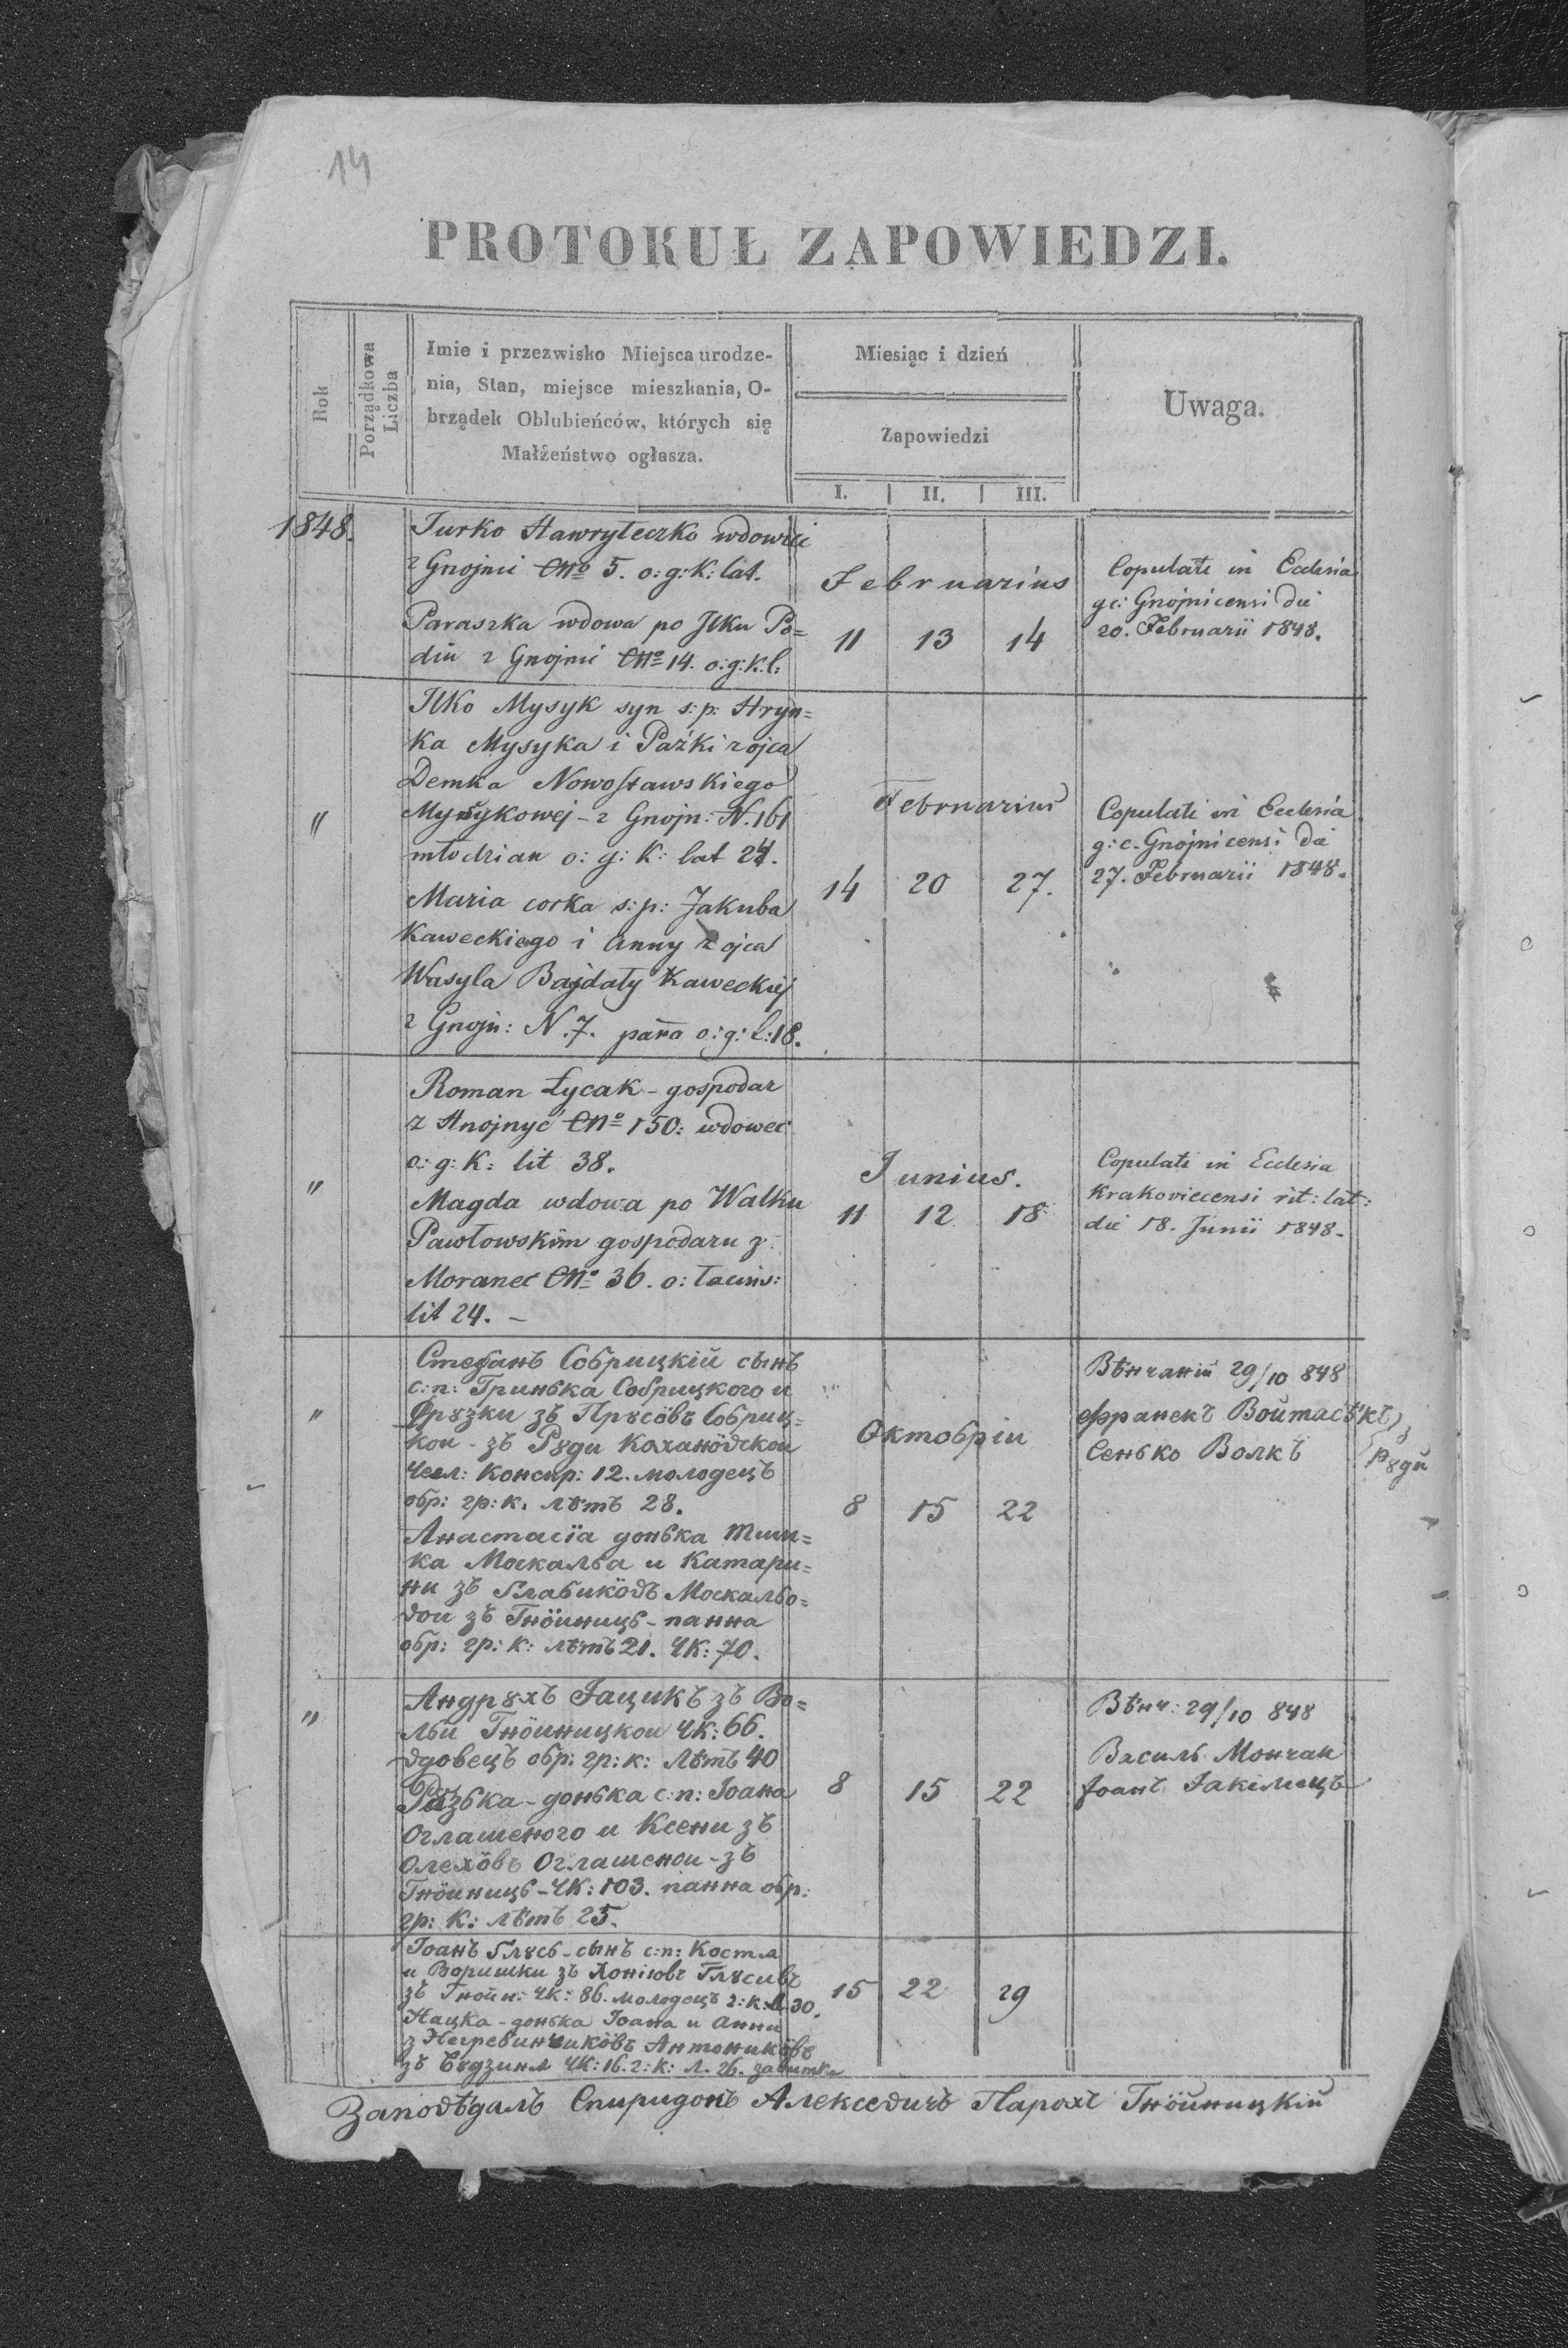 14
PROTOKUŁ ZAPOWIEDZI.
Rok
Porządkowa Liczba
Imie i przezwisko Miejsca urodze-
nia, Stan, miejsce mieszkania, O-
brządek Oblubieńców, których się
Małżeństwo ogłasza.
Miesiąc i dzień
Zapowiedzi
I. II. III.
Uwaga.
1848.
Jurko Hawryleczko wdowiec
z Gnojnic No 5. o: g: K: lat.
Paraszka wdowa po Ilku Po=
diu z Gnojnic No 14. o: g: k: l:
Februarius
11 13 14
Copulati in Ecclesia
gc: Gnojnicensi die
20. Februarii 1848.
"
Ilko Mysyk syn s: p: Hryn=
ka Mysyka i Paźki z ojca
Demka Nowosławskiego
Mysykowej - z Gnojn: N. 161
młodzian o: g: K: lat 24.
Maria corka s: p: Jakuba
Kaweckiego i Anny z ojca
Wasyla Bajdały Kaweckiej
z Gnojn: N. 7. pańa o: g: l: 18.
Februarius
14 20 27.
Copulati in Ecclesia
g: c. Gnojnicensi die
27. Februarii 1848.
"
Roman Łycak - gospodar
z Hnojnyć No 150: wdowec
o: g: K: lit 38.
Magda wdowa po Walku
Pawłowskim gospodaru z
Moranec No 36. o: łacins:
lit 24. -
Junius.
11 12 18
Copulati in Ecclesia
Krakoviecensi rit: lat:
die 18. Junii 1848.
"
Стефанъ Собрицкій сынъ
с: п: Гринька Собрицкого и
Фрузки зъ Прусôвъ Собриц=
кои - зъ Руди Кохановскои
Чесл: Конскр: 12. молодецъ
обр: гр: к. лѣтъ 28.
Анастасїа донька Тим=
ка Москальа и Катари=
ни зъ Слабикôвъ Москальо=
вои зъ Гнôиниць - панна
обр: гр: к: лѣтъ 21. ЧК: 70.
Октобріи
8 15 22
Вѣнчаній 29/10 848
Франекъ Войтасѣкъ
Сенько Волкъ
з Руди
"
Андрухъ Яацикъ зъ Во=
льи Гнôиницкои ЧК: 66.
вдовецъ обр: гр: к: Лѣтъ 40
Разька - донька с: п: Іоана
Оглашеного и Ксени зъ
Олехôвъ Оглашенои - зъ
Гнôиниць - ЧК: 103. панна обр:
гр: К: лѣтъ 25.
8 15 22
Вѣнч: 29/10 848
Василь Мончак
Іоанъ Іакімецъ
Іоанъ Глусь - сынъ с: п: Костя
зъ Гнойн: ЧК: 86. молодецъ г: к: Л. 30.
Нацка - донька Іоана и Анни
зъ Будзиня ЧК: 16. г: к: л. 26.
15 22 29
Заповѣдалъ Спиридонъ Алексевичъ Парохъ Гнôйницкій